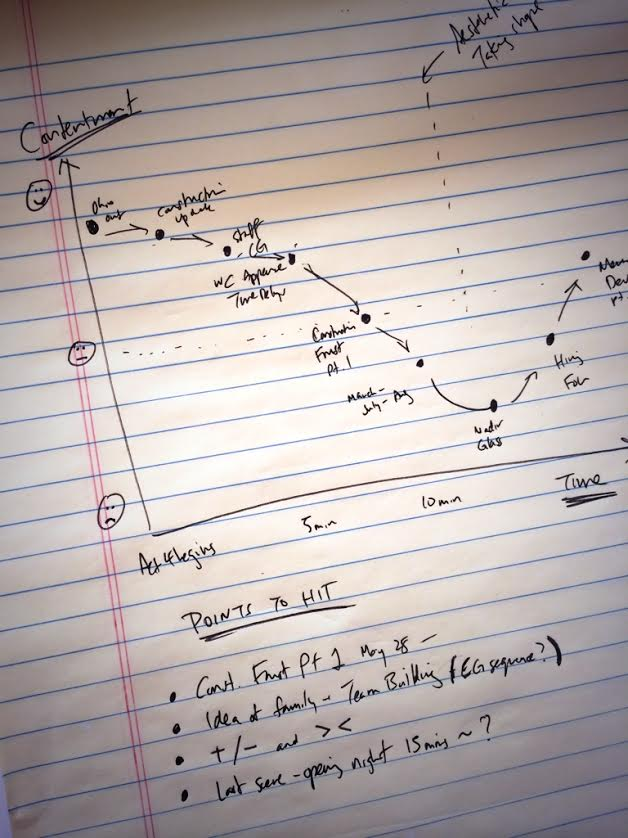 Aesthetic
Taking shape
Contentment
out
Construction
update
Staff
EG
WC Appease
Time Delays
Construction
Frust
Pt. 1
March-
July-Aug
Nadir
Glass
Hiring
Foh
Menu
Dev
Pt.
5min
10min
Time
Act 4 begins
POINTS TO HIT
• Const. Frust Pt 1 May 28 -
• Idea of family - Team Building (EG sequence?)
• +/- and ><
• Last scene - opening night 15 mins ~ ?